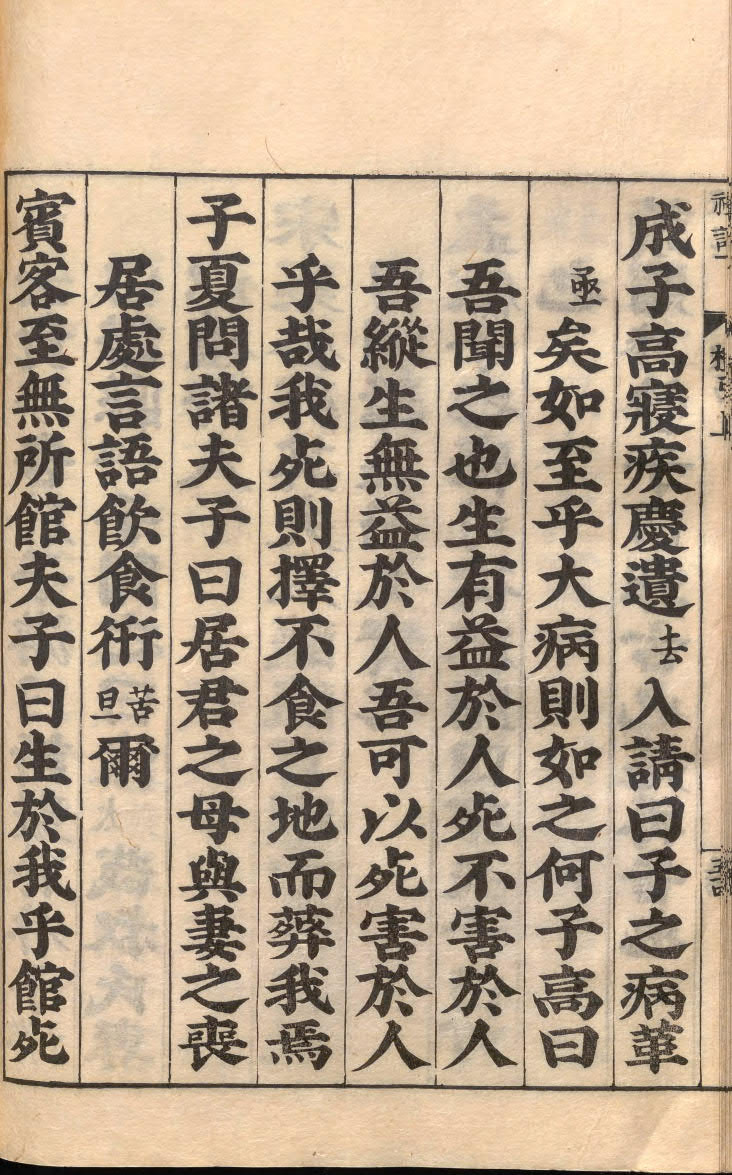 成子高寢疾慶遺去入請曰子之病革
亟矣如至乎大病則如之何子高曰
吾聞之也生有益於人死不害於人
吾縱生無益於人吾可以死害於人
乎哉我死則擇不食之地而葬我焉
子夏問諸夫子曰居君之母與妻之喪
居處言語飲食衎苦旦爾
賓客至無所館夫子曰生於我乎館死